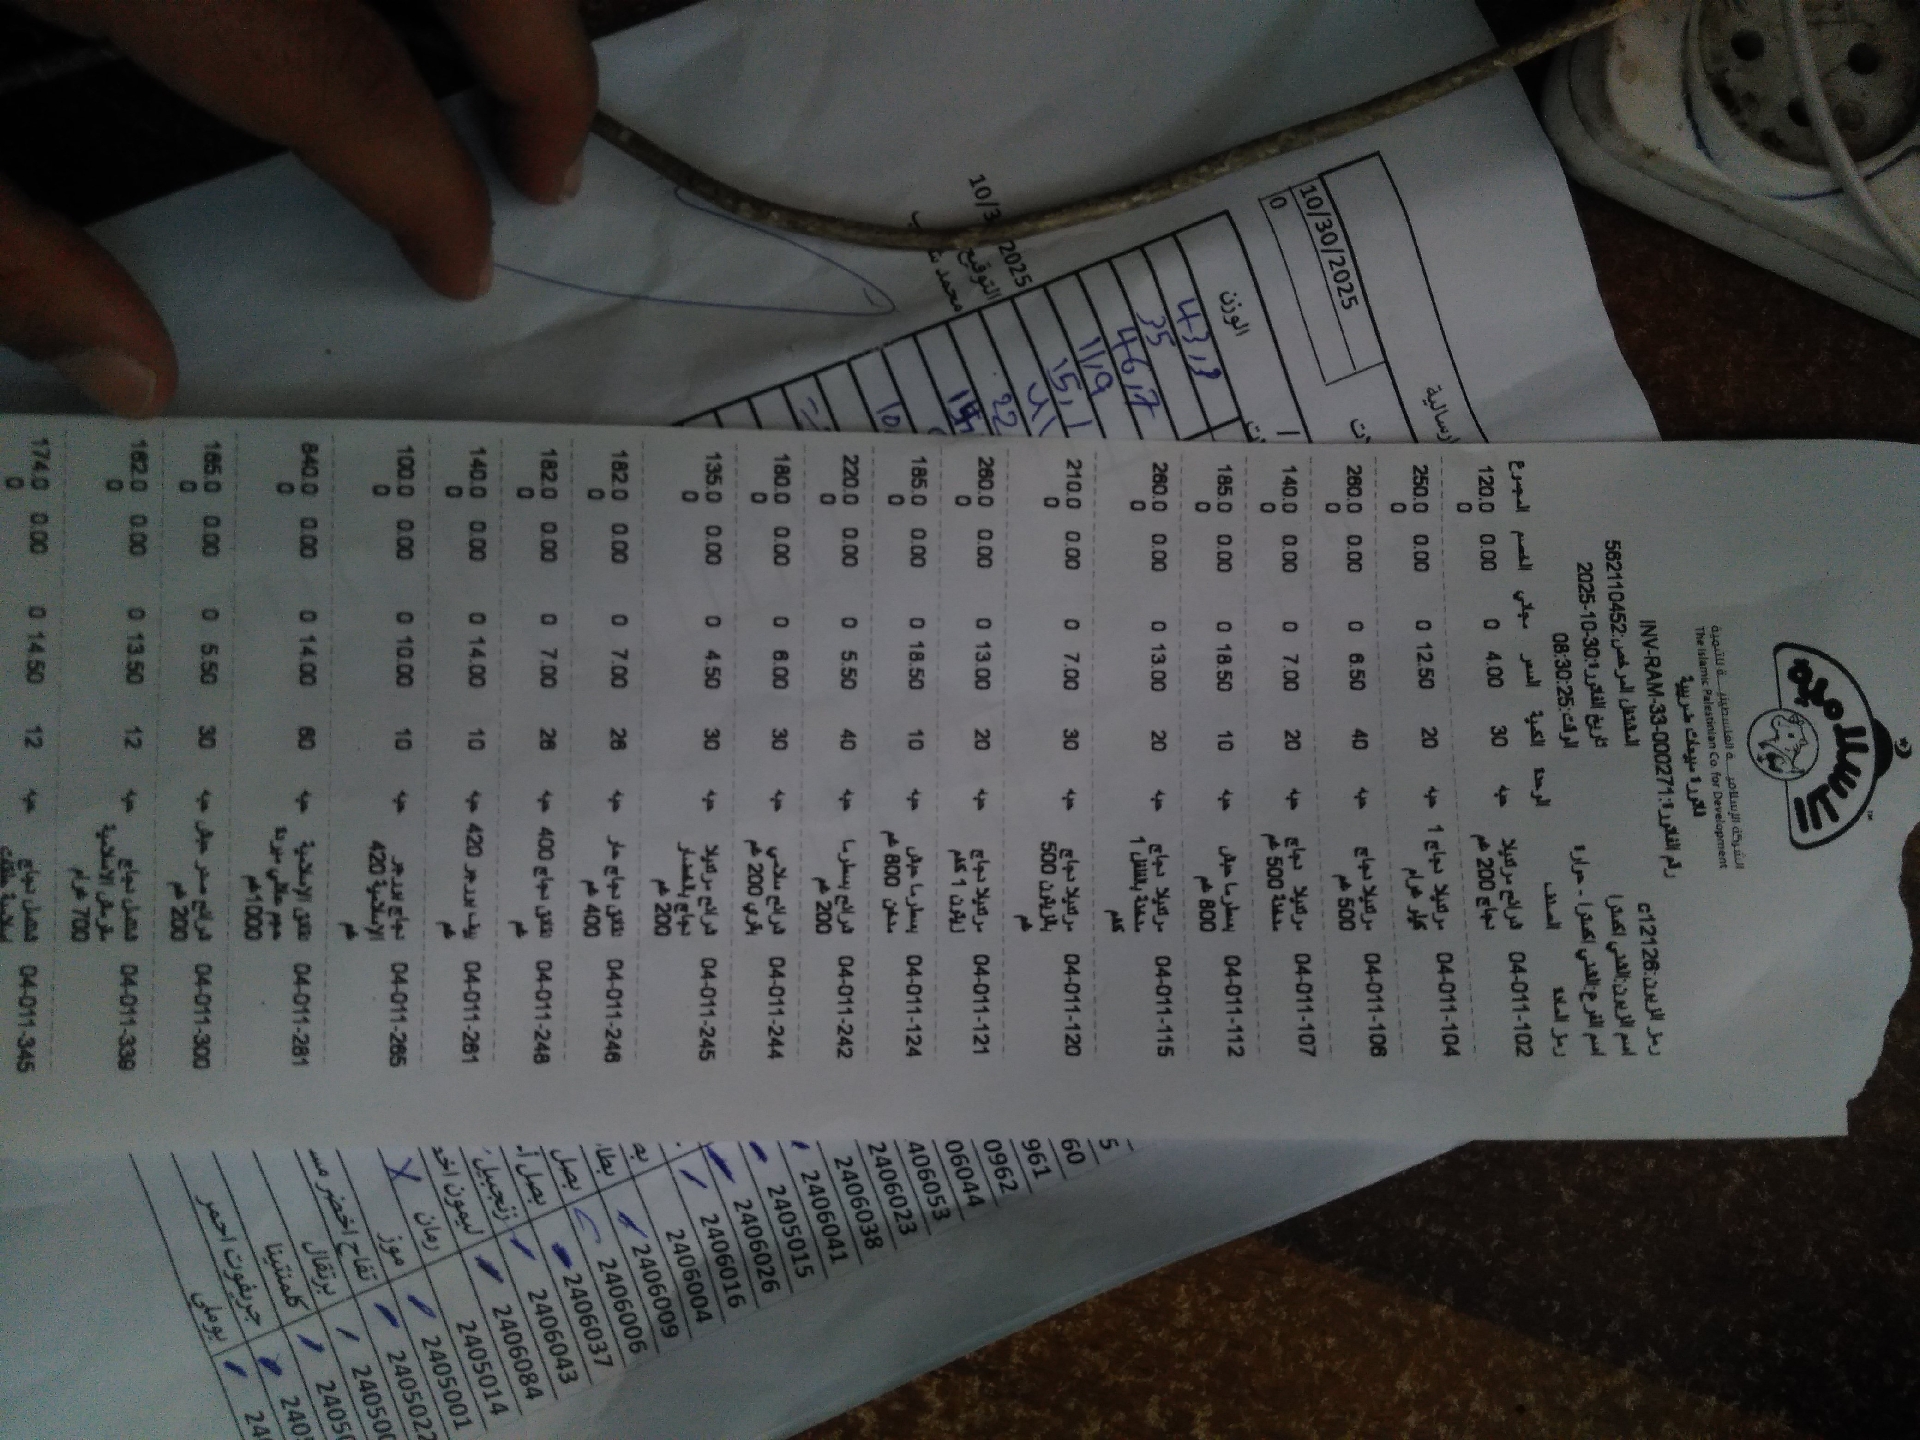 الإسلامية
الشركة الإسلامية الفلسطينية للتنمية
The Islamic Palestinian Co. for Development
فاتورة مبيعات ضريبية
رقم الفاتورة:INV-RAM-33-0002771
رمز الزبون:c12126
المشتغل المرخص:562110452
تاريخ الفاتورة:2025-10-30
الوقت:08:30:25
رمز المادة الصنف الوحدة الكمية السعر مجاني الخصم المجموع
04-011-102 شرائح مرتديلا دجاج 200 غم حبه 30 4.00 0 0.00 120.00
04-011-104 مرتديلا دجاج 1 كيلو غرام حبه 20 12.50 0 0.00 250.00
04-011-106 مرتديلا دجاج 500 غم حبه 40 6.50 0 0.00 260.00
04-011-107 مرتديلا دجاج مدخنة 500 غم حبه 20 7.00 0 0.00 140.00
04-011-112 بسطرما حبش 800 غم حبه 10 18.50 0 0.00 185.00
04-011-115 مرتديلا دجاج مدخنة بالفلفل 1 كغم حبه 20 13.00 0 0.00 260.00
04-011-120 مرتديلا دجاج بالزيتون 500 غم حبه 30 7.00 0 0.00 210.00
04-011-121 مرتديلا دجاج زيتون 1 كغم حبه 20 13.00 0 0.00 260.00
04-011-124 بسطرما حبش مدخن 800 غم حبه 10 18.50 0 0.00 185.00
04-011-242 شرائح بسطرما 200 غم حبه 40 5.50 0 0.00 220.00
04-011-244 شرائح سلامي بقري 200 غم حبه 30 6.00 0 0.00 180.00
04-011-245 شرائح مرتديلا دجاج بالخضار 200 غم حبه 30 4.50 0 0.00 135.00
04-011-246 نقانق دجاج حار 400 غم حبه 26 7.00 0 0.00 182.00
04-011-248 نقانق دجاج 400 غم حبه 26 7.00 0 0.00 182.00
04-011-261 بيف بيرجر 420 غم حبه 10 14.00 0 0.00 140.00
04-011-265 دجاج بيرجر الإسلامية 420 غم حبه 10 10.00 0 0.00 100.00
04-011-281 نقانق الإسلامية 1000غم حبه 60 14.00 0 0.00 840.00
04-011-300 شرائح صدر حبش 200 غم حبه 30 5.50 0 0.00 165.00
04-011-339 دجاج الإسلامية 700 غرام حبه 12 13.50 0 0.00 162.00
04-011-345 دجاج حبه 12 14.50 0 0.00 174.00
إرسالية
10/30/2025
0
الوزن
43,3
35
46,7
11,9
15,1
22
10/3 2025
التوقيع
5
60
961
0962
06044
406053
2406023
2406038
2406041
2405015
2406026
2406016
2406004
2406009
2406006
بصل 2406037
2406043
زنجبيل 2406084
2405014
رمان 2405001
موز 2405022
تفاح اخضر 24050
برتقال 2405
كلمنتينا 2405
جريفوت احمر 240
بوملي 24